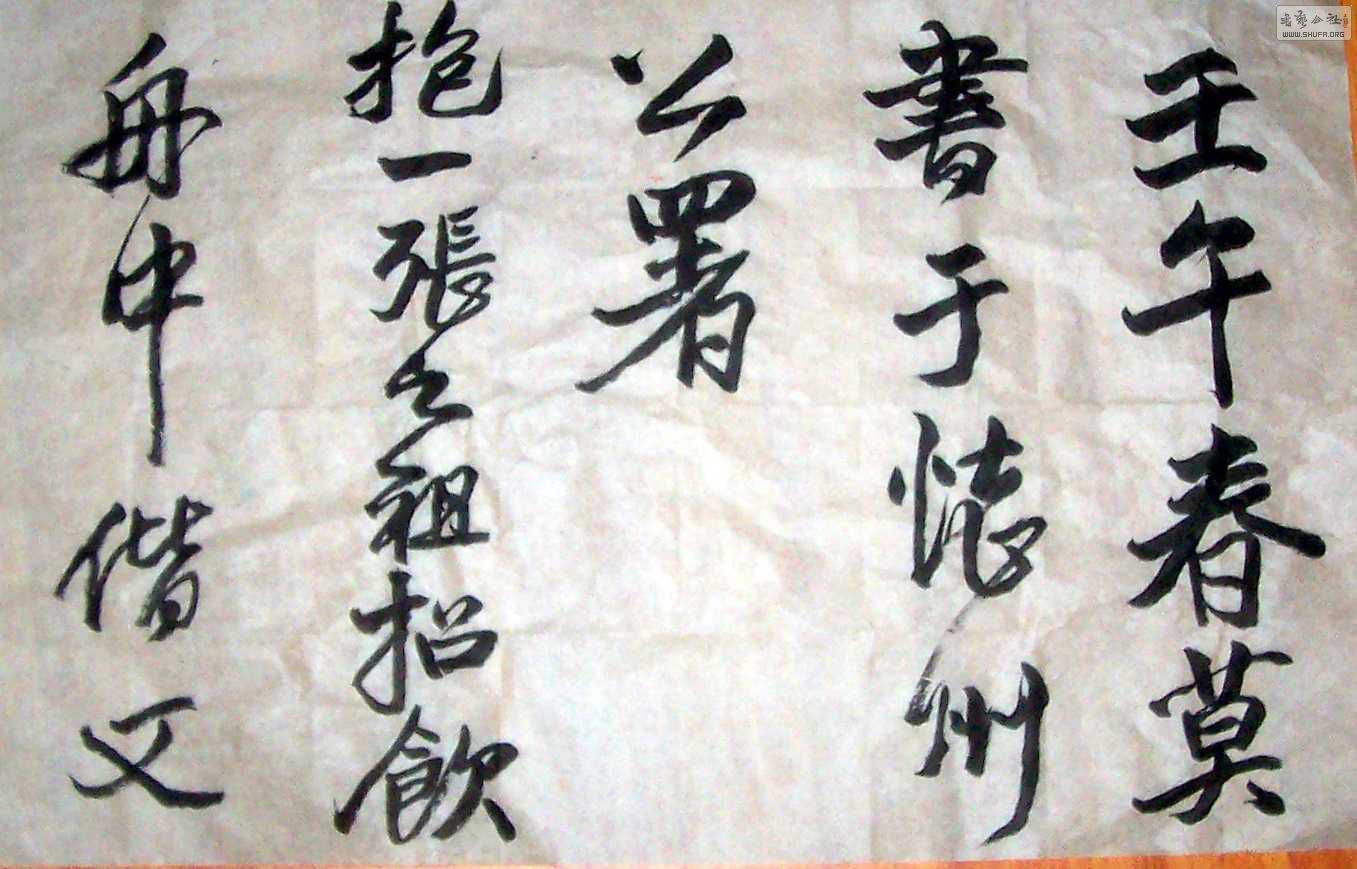 壬午春莫
書于懷州
公署
抱一張之祖招飲
舟中偕文
書藝公社
WWW.SHUFA.ORG